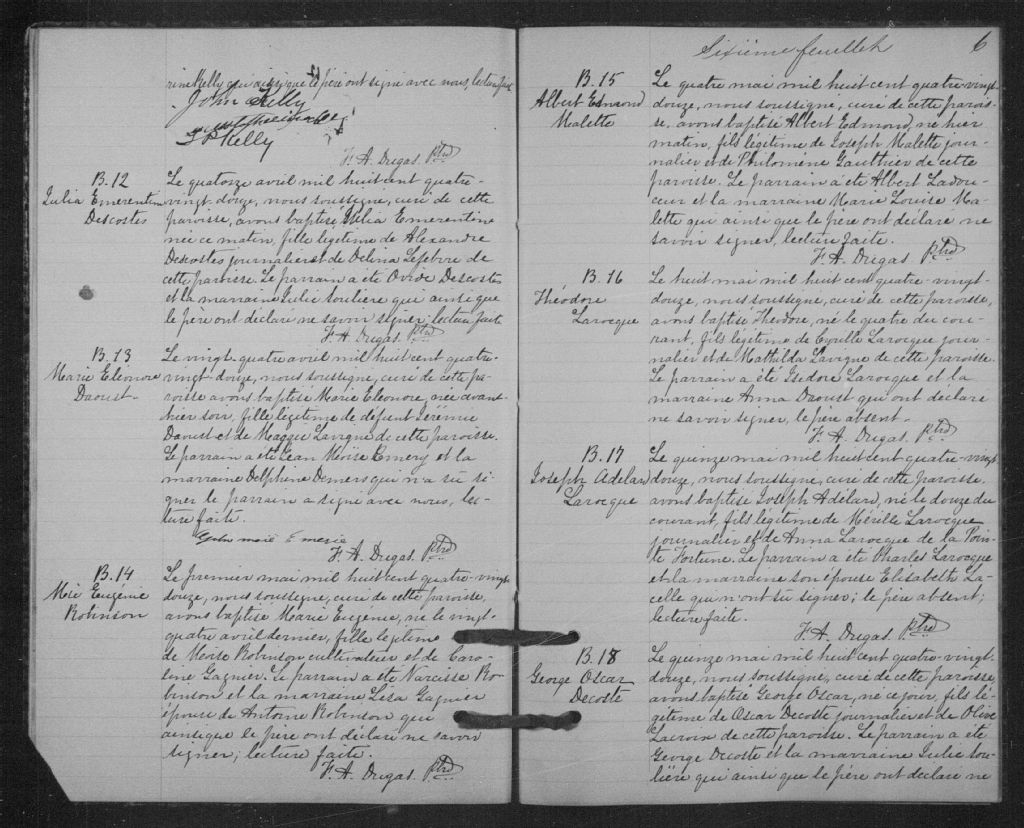 rine Kelly qui ainsi que le père ont signé avec nous, lecture faite
John Kelly
J P Kelly
F. A. Dugas. Ptre
B. 12
Julia Emerentine
Descostes
Le quatorze avril mil huit cent quatre-
vingt-douze, nous soussigné, curé de cette
paroisse, avons baptisé Julia Emerentine
née ce matin, fille légitime de Alexandre
Descostes journalier et de Delina Lefebvre de
cette paroisse. Le parrain a été Ovide Descostes
et la marraine Julie Souliere qui ainsi que
le père ont déclaré ne savoir signer; lecture faite
F. A. Dugas. Ptre
B. 13
Marie Eléonore
Daoust
Le vingt-quatre avril mil huit cent quatre-
vingt-douze, nous soussigné, curé de cette pa-
roisse avons baptisé Marie Eléonore, née avant-
hier soir, fille légitime de défunt Jérémie
Daoust et de Maggie Lavigne de cette paroisse.
Le parrain a été Jean Moïse Emery et la
marraine Delphine Demers qui n'a su si-
gner le parrain a signé avec nous, lec-
ture faite.
F. A. Dugas. Ptre
B. 14
Mie Eugénie
Robinson
Le premier mai mil huit cent quatre-vingt
douze, nous soussigné, curé de cette paroisse,
avons baptisé Marie Eugénie, née le vingt-
quatre avril dernier, fille légitime
de Moïse Robinson cultivateur et de Caro-
line Gagnier. Le parrain a été Narcisse Ro-
binson et la marraine Lisa Gagnier
épouse de Antoine Robinson qui
ainsi que le père ont déclaré ne savoir
signer; lecture faite.
F. A. Dugas. Ptre
Sixième feuillet
6
B. 15
Albert Edmond
Malette
Le quatre mai mil huit cent quatre-vingt-
douze, nous soussigné, curé de cette parois-
se, avons baptisé Albert Edmond, né hier
matin, fils légitime de Joseph Malette jour-
nalier et de Philomène Gauthier de cette
paroisse. Le parrain a été Albert Ladou-
ceur et la marraine Marie Louise Ma-
lette qui ainsi que le père ont déclaré ne
savoir signer, lecture faite.
F. A. Dugas. Ptre
B. 16
Théodore
Larocque
Le huit mai mil huit cent quatre-vingt-
douze, nous soussigné, curé de cette paroisse,
avons baptisé Théodore, né le quatre du cou-
rant, fils légitime de Cyrille Larocque jour-
nalier et de Mathilda Lavigne de cette paroisse.
Le parrain a été Isidore Larocque et la
marraine Anna Daoust qui ont déclaré
ne savoir signer, le père absent.
F. A. Dugas. Ptre
B. 17
Joseph Adelard
Larocque
Le quinze mai mil huit cent quatre-vingt
douze, nous soussigné, curé de cette paroisse,
avons baptisé Joseph Adélard, né le douze du
courant, fils légitime de Mérille Larocque
journalier et de Anna Larocque de la Poin-
te Fortune. Le parrain a été Charles Larocque
et la marraine son épouse Elisabeth La-
celle qui n'ont su signer; le père absent;
lecture faite.
F. A. Dugas. Ptre
B. 18
George Oscar
Decoste
Le quinze mai mil huit cent quatre-vingt-
douze, nous soussigné, curé de cette paroisse,
avons baptisé George Oscar, né ce jour, fils lé-
gitime de Oscar Decoste journalier et de Olive
Lacroix de cette paroisse. Le parrain a été
George Decoste et la marraine Julie Sou-
lière qui ainsi que le père ont déclaré ne